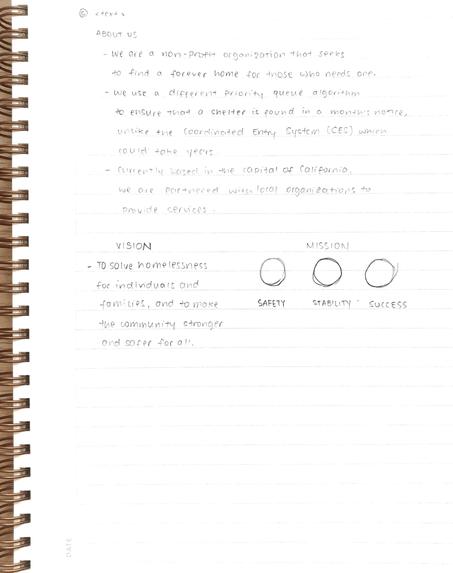 ABOUT US
- We are a non-profit organization that seeks
to find a forever home for those who needs one.
- We use a different priority queue algorithm
to ensure that a shelter is found in a month's notice,
unlike the Coordinated Entry System (CES) which
could take years.
- Currently based in the capital of California,
we are partnered with local organizations to
provide services.
VISION
MISSION
- To solve homelessness
for individuals and
families, and to make
the community stronger
and safer for all.
SAFETY
STABILITY
SUCCESS
DATE